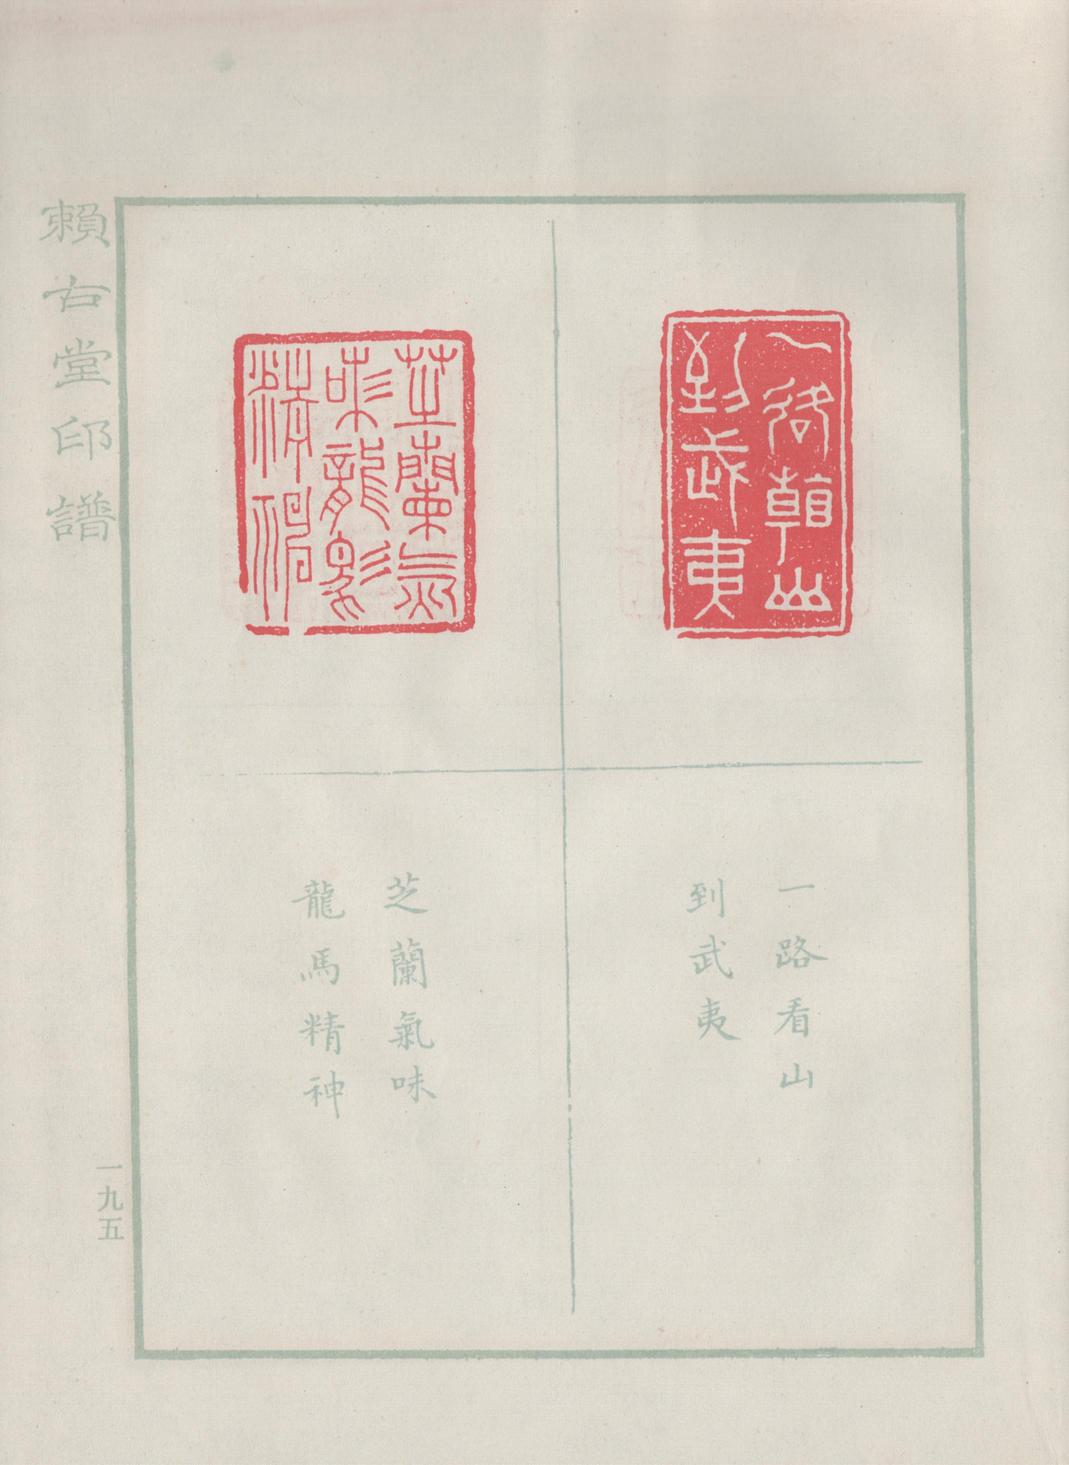 賴古堂印譜
一路看山
到武夷
一路看山
到武夷
芝蘭氣
味龍馬
精神
芝蘭氣味
龍馬精神
一九五